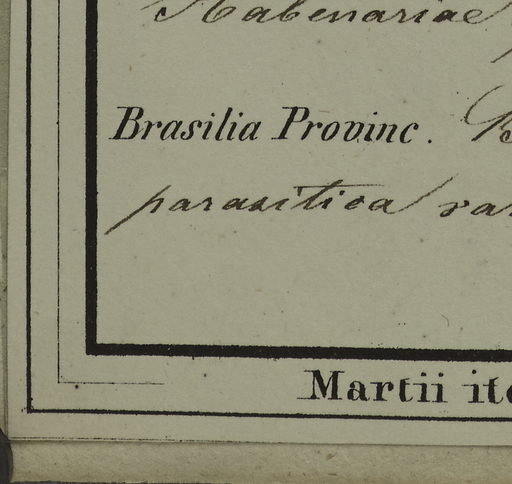 Habenariae
Brasilia Provinc. B
parasitica rar
Martii ite